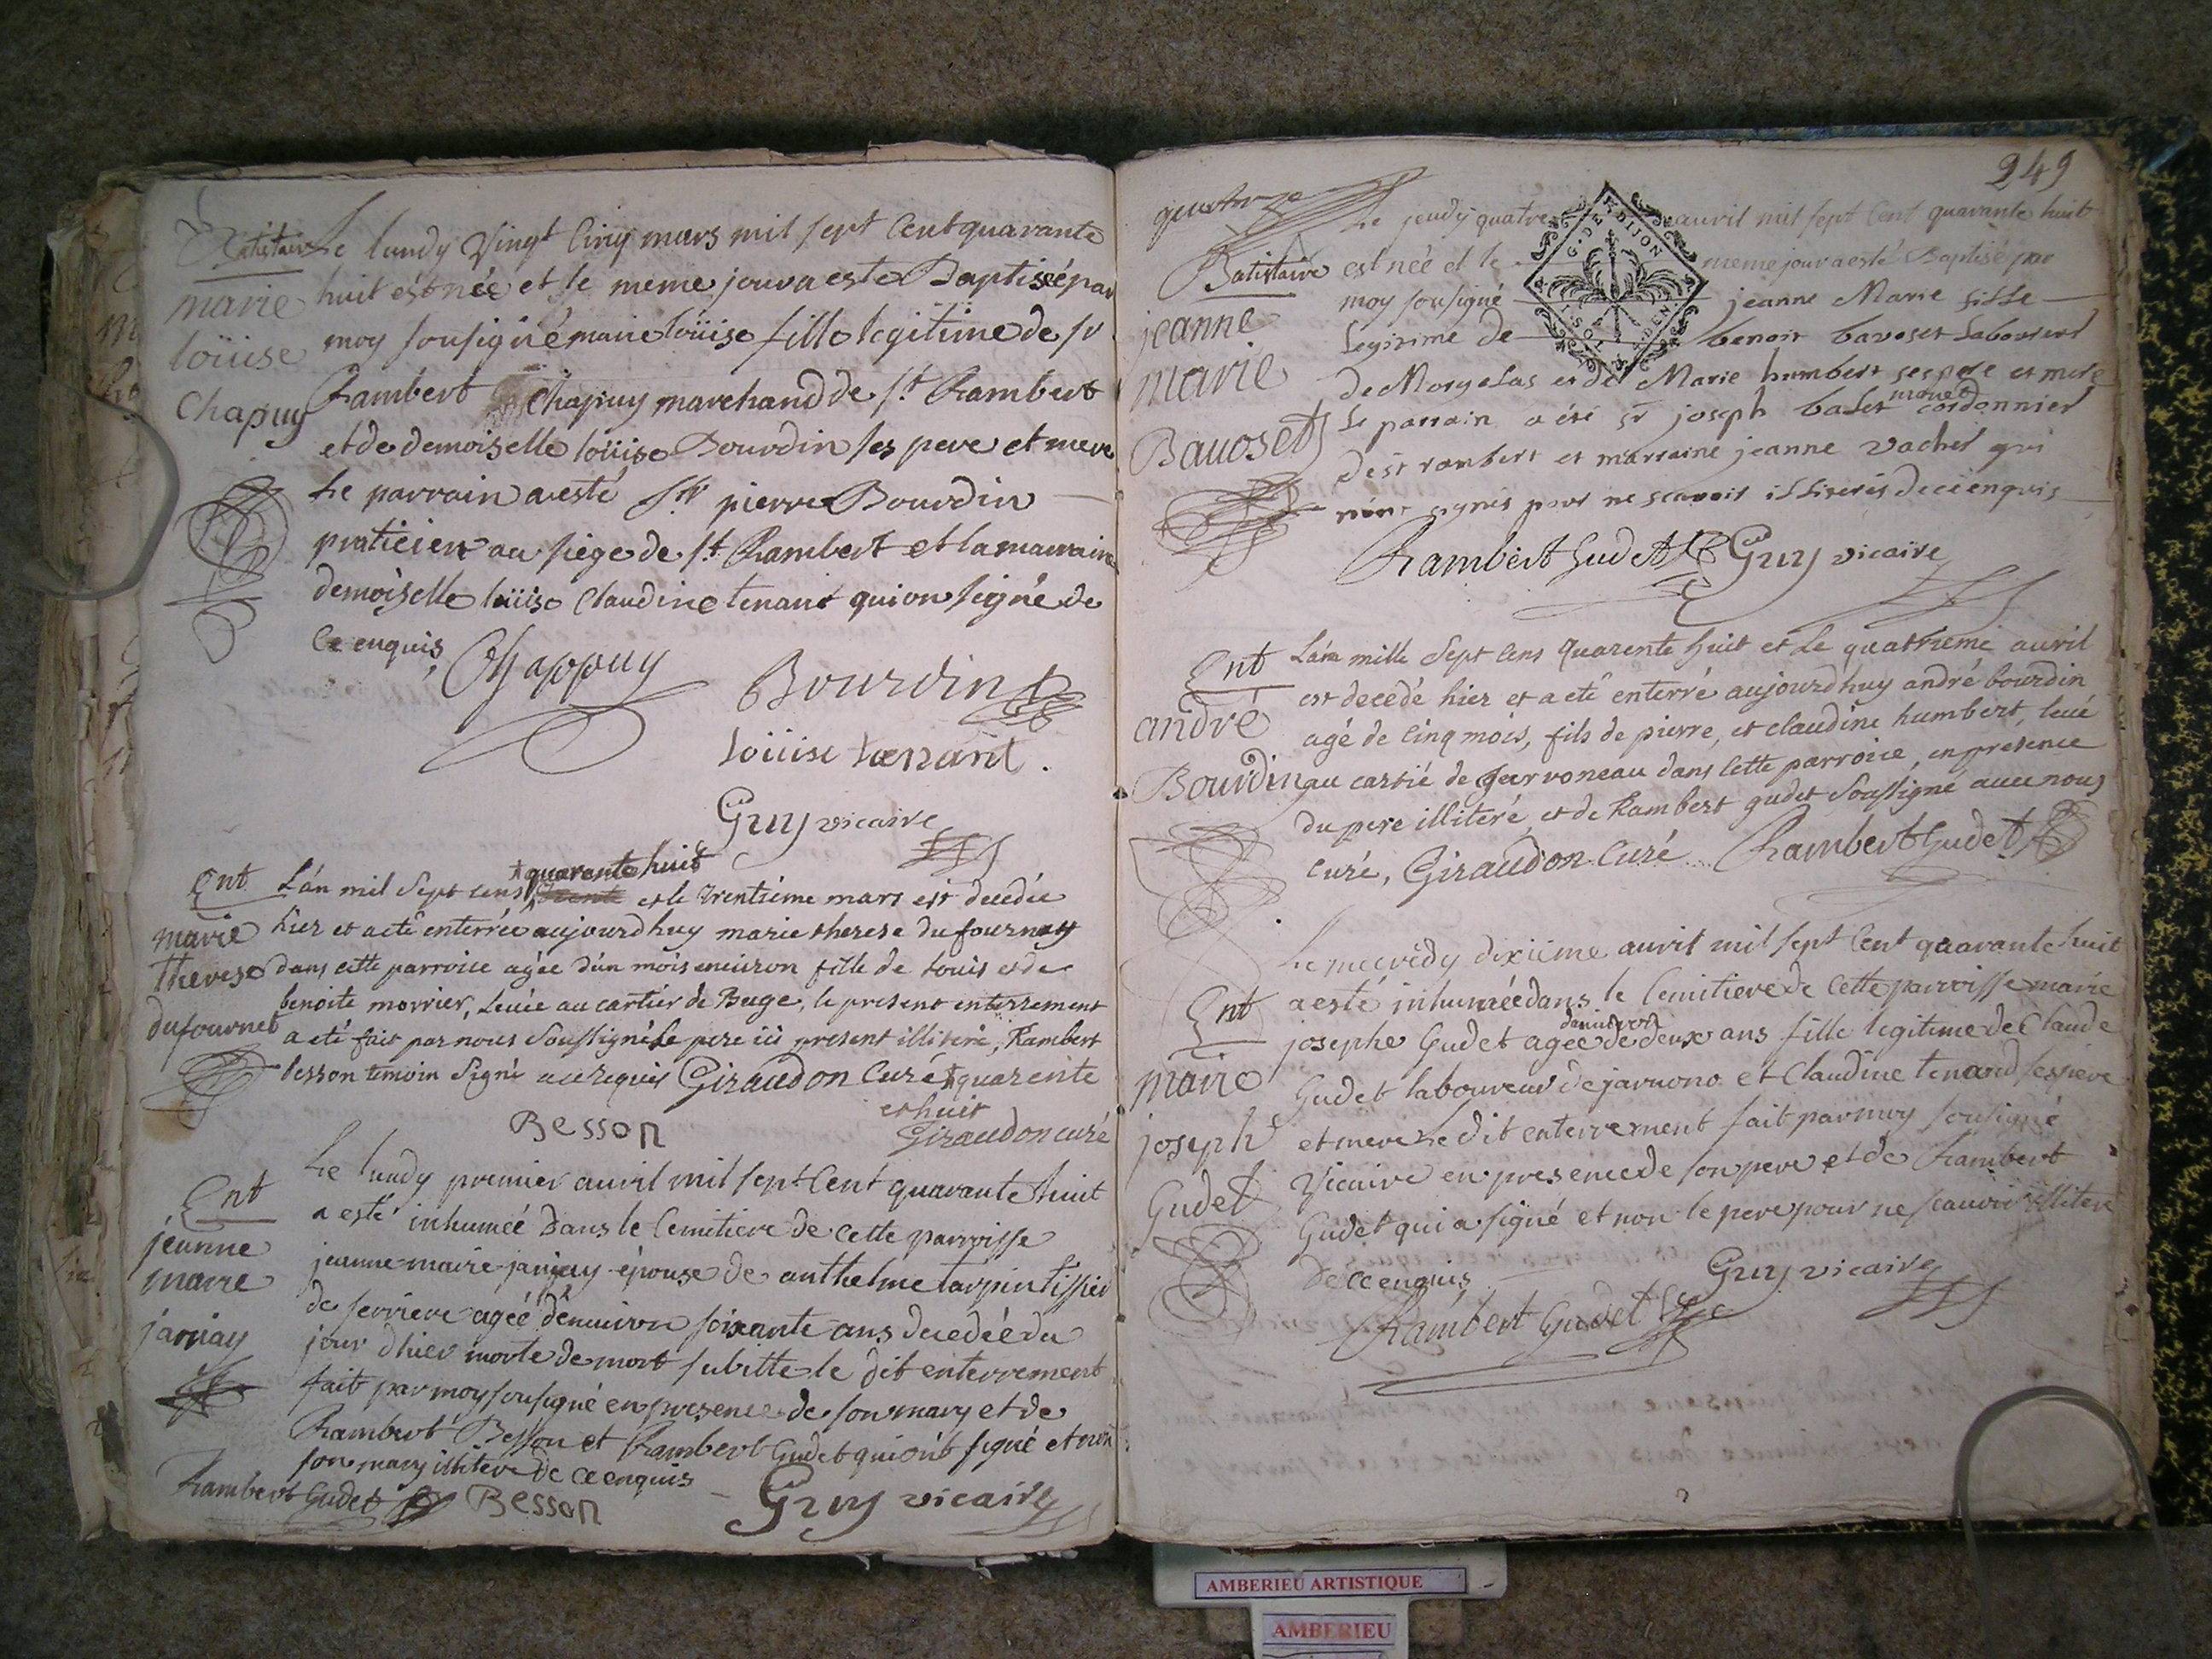 Batistaire Le lundy vingt cinq mars mil sept cent quarante
marie huit est née et le meme jour a esté Baptisé par
loüise moy sousigné marie loüise fille legitime de sr
Chapuy Rambert Chapuy marchand de st Rambert
et de demoiselle loüise Bourdin ses pere et mere
Le parrain a esté sr pierre Bourdin
praticien au siege de st Rambert et la marraine
demoiselle loüise Claudine tenant qui on signé de
ce enquis
Chappuy
Bourdin
Loüise tenant.
Gruy vicaire
quarante huit
Ent L'an mil sept cens trente et le trentieme mars est decedée
marie hier et a eté enterrée aujourdhuy marie therese du fournet
therese dans cette parroice agée d'un mois environ fille de Louis et de
dufournet benoite morrier, Levée au cartier de Buge, le present enterrement
a eté fait par nous soussigné Le pere ici present illiteré, Rambert
besson temoin signé ace requis Giraudon curé quarente
et huit
Besson Giraudon curé
Ent Le lundy premier avril mil sept cent quarante huit
a esté inhumeé dans le Cemitiere de cette parroisse
jeanne marie jeanne marie janjay épouse de anthelme tarpin tissier
de serriere ageé d'environ soixante ans decedeé du
jour d'hier morte de mort subitte le dit enterrement
fait par moy sousigné en presence de son mary et de
Rambert Besson et Rambert Gudet qui ont signé et non
son mary illitere de ce enquis
Rambert Gudet Besson Gruy vicaire
249
quatorze
Le jeudy quatre avril mil sept cent quarante huit
G. DE DIJON
Batistaire est neé et le meme jour a esté Baptisé par
moy sousigné jeanne Marie fille
jeanne Legitime de benoit bavoset Laboureur
marie de Morgelas et de Marie humbert ses pere et mere
Le parrain a été sr joseph balet cordonnier
Bavoset de st rambert et marraine jeanne vachet qui
n'ont signés pour ne scavoir illiterés de ce enquis
Rambert Gudet Gruy vicaire
Ent L'an mille sept cens quarente huit et Le quatrieme avril
est decedé hier et a eté enterré aujourdhuy andré bourdin
andré agé de cinq mois, fils de pierre, et claudine humbert, levé
Bourdin au cartié de Jarvoneau dans cette parroice, en presence
du pere illiteré et de Rambert gudet soussigné avec nous
curé, Giraudon curé Rambert Gudet
Le mecredy dixieme avril mil sept cent quarante huit
Ent a esté inhumeé dans le Cemitiere de cette parroisse marie
d'environ
josephe Gudet ageé de deux ans fille legitime de Claude
marie Gudet laboureur de jarvono et Claudine tenand ses pere
joseph et mere Le dit enterrement fait par moy sousigné
Vicaire en presence de son pere et de Rambert
Gudet Gudet qui a signé et non le pere pour ne scavoir illiteré
de ce enquis Gruy vicaire
Rambert Gudet
AMBERIEU ARTISTIQUE
AMBERIEU